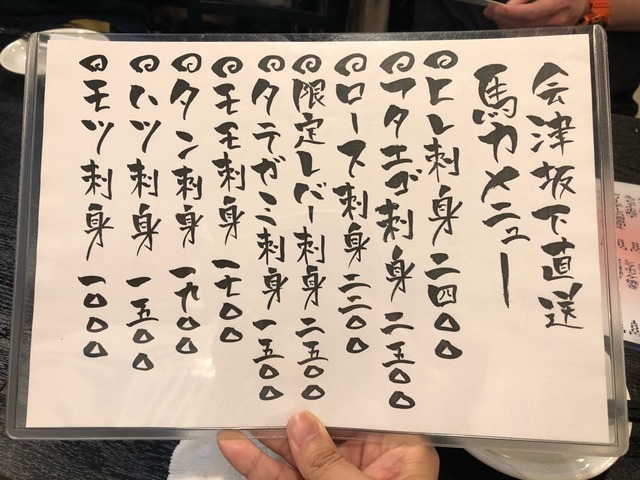 会津坂下直送
馬力メニュー
ヒレ刺身 二四〇〇
フタエゴ刺身 二五〇〇
ロース刺身 二二〇〇
限定レバー刺身 二五〇〇
タテガミ刺身 一五〇〇
モモ刺身 一七〇〇
タン刺身 一九〇〇
ハツ刺身 一五〇〇
モツ刺身 一〇〇〇